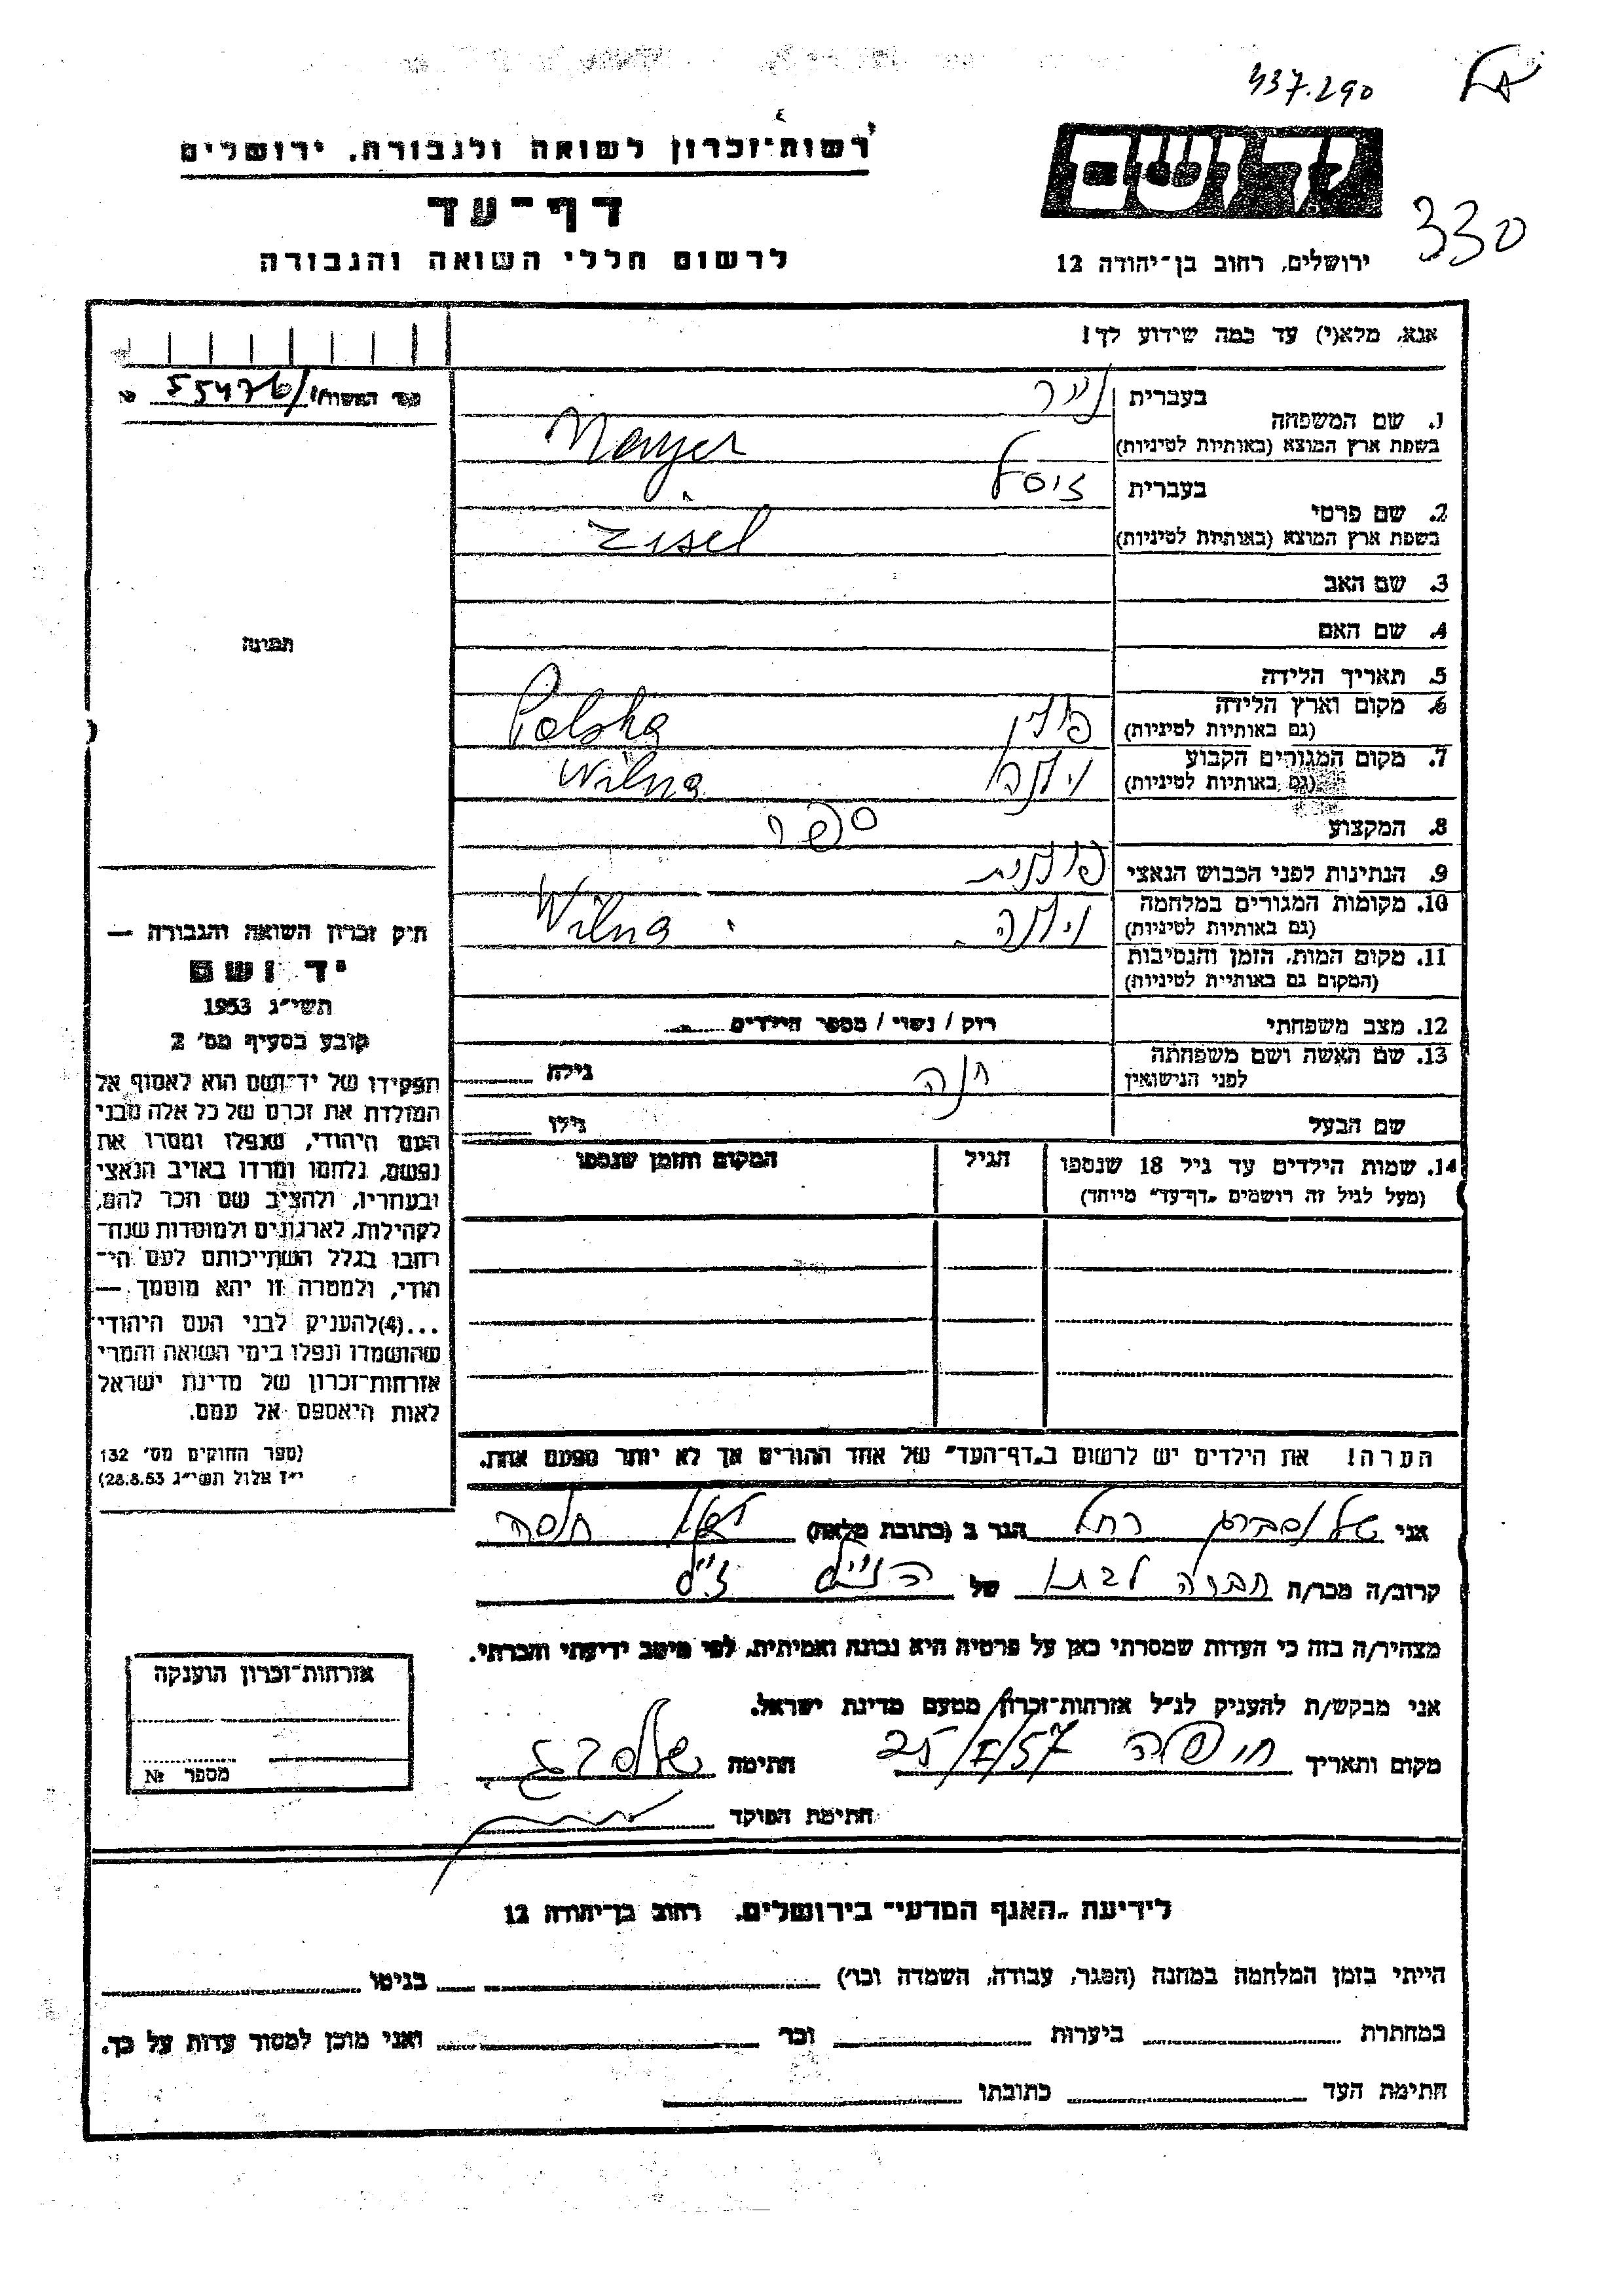 437.290
330
רשות־זכרון לשואה ולגבורה, ירושלים
דף־עד
לרשום חללי השואה והגבורה
יד ושם
ירושלים, רחוב בן־יהודה 12
אנא, מלא(י) עד כמה שידוע לך!
55476/
1. שם המשפחה
בעברית
בשפת ארץ המוצא (באותיות לטיניות) Mayer
2. שם פרטי
בעברית זיסל
בשפת ארץ המוצא (באותיות לטיניות) Zisel
3. שם האב
4. שם האם
5. תאריך הלידה
6. מקום וארץ הלידה
(גם באותיות לטיניות) פולין Polska
7. מקום המגורים הקבוע
(גם באותיות לטיניות) וילנה Wilna
8. המקצוע ספר
9. הנתינות לפני הכבוש הנאצי פולנית
10. מקומות המגורים במלחמה
(גם באותיות לטיניות) וילנה Wilna
11. מקום המות, הזמן והנסיבות
(המקום גם באותיות לטיניות)
12. מצב משפחתי רוק / נשוי / מספר הילדים
13. שם האשה ושם משפחתה
לפני הנישואין חנה גילה
שם הבעל גילו
14. שמות הילדים עד גיל 18 שנספו הגיל המקום והזמן שנספו
(מעל לגיל זה רושמים "דף־עד" מיוחד)
הערה! את הילדים יש לרשום ב"דף־העד" של אחד ההורים אך לא יותר מפעם אחת.
תמונה
חוק זכרון השואה והגבורה —
יד ושם
תשי"ג 1953
קובע בסעיף מס' 2
תפקידו של יד־ושם הוא לאסוף אל
המולדת את זכרם של כל אלה מבני
העם היהודי, שנפלו ומסרו את
נפשם, נלחמו ומרדו באויב הנאצי
ובעוזריו, ולהציב שם וזכר להם,
לקהילות, לארגונים ולמוסדות שנח־
רבו בגלל השתייכותם לעם הי־
הודי, ולמטרה זו יהא מוסמך —
...(4)להעניק לבני העם היהודי
שהושמדו ונפלו בימי השואה והמרי
אזרחות־זכרון של מדינת ישראל
לאות היאספם אל עמם.
(ספר החוקים מס' 132
י"ז אלול תשי"ג 28.8.53)
אני רחל הגר ב (כתובת מלאה)
קרוב/ה מכר/ה חברה של הנ"ל
מצהיר/ה בזה כי העדות שמסרתי כאן על פרטיה היא נכונה ואמיתית, לפי מיטב ידיעתי והכרתי.
אני מבקש/ת להעניק לנ"ל אזרחות־זכרון מטעם מדינת ישראל.
מקום ותאריך חיפה 25/I/57 חתימה
חתימת הפוקד
אזרחות־זכרון הוענקה
מספר №
לידיעת "האגף המדעי" בירושלים, רחוב בן־יהודה 12
הייתי בזמן המלחמה במחנה (הסגר, עבודה, השמדה וכו') בגיטו
במחתרת ביערות וכו' ואני מוכן למסור עדות על כך.
חתימת העד כתובתו